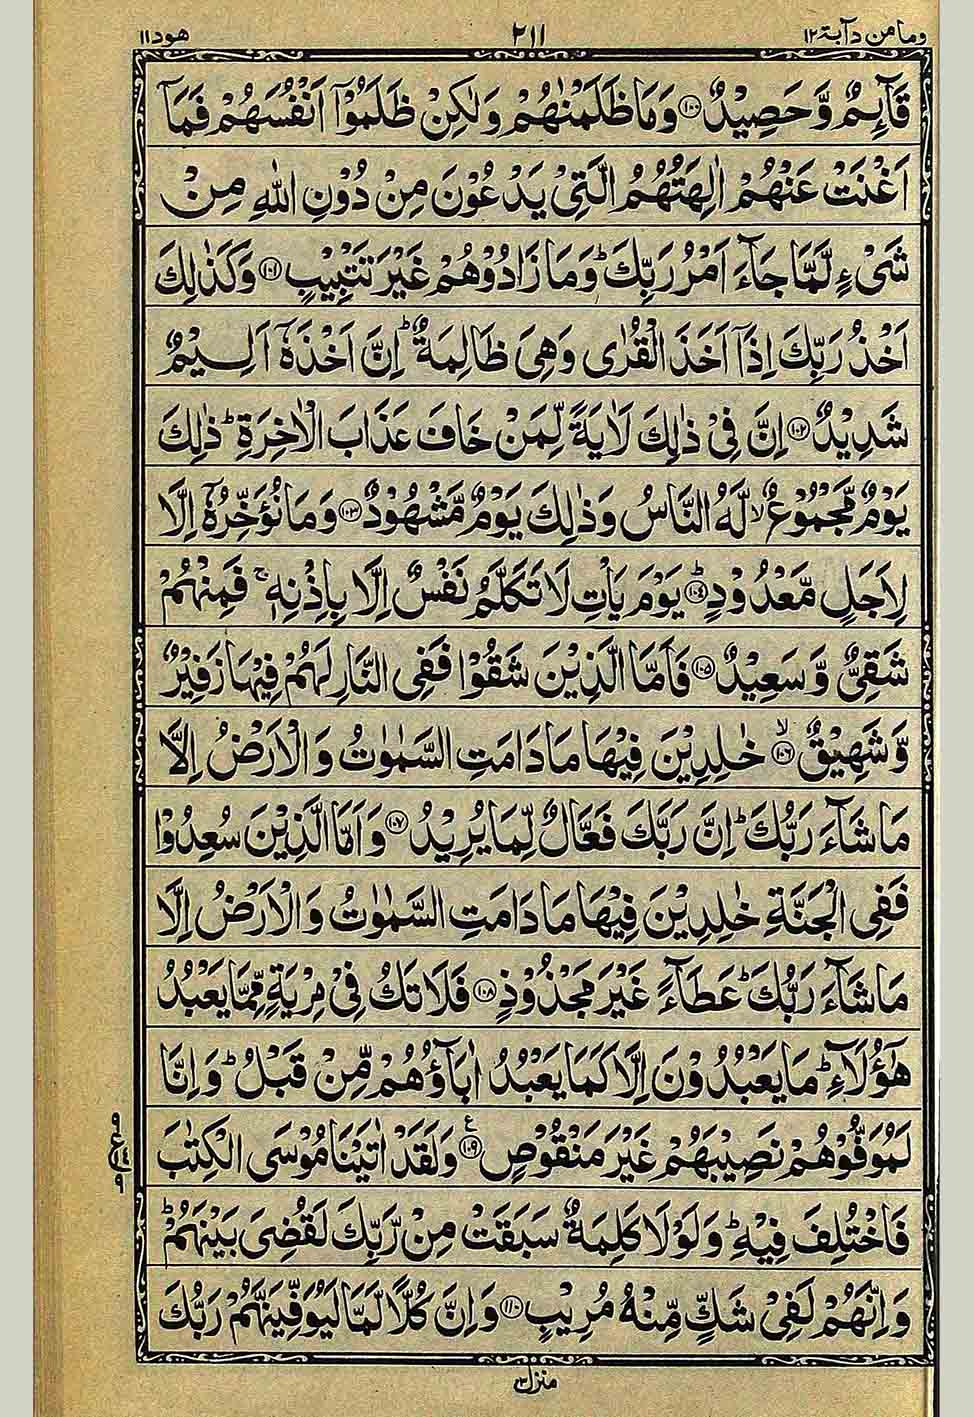 وما من دآبة ١٢
٢١١
هود ١١
قَآئِمٌ وَّحَصِيْدٌ ﴿١٠٠﴾ وَمَا ظَلَمْنٰهُمْ وَلٰكِنْ ظَلَمُوْٓا اَنْفُسَهُمْ فَمَآ
اَغْنَتْ عَنْهُمْ اٰلِهَتُهُمُ الَّتِيْ يَدْعُوْنَ مِنْ دُوْنِ اللّٰهِ مِنْ
شَيْءٍ لَّمَّا جَآءَ اَمْرُ رَبِّكَ ؕ وَمَا زَادُوْهُمْ غَيْرَ تَتْبِيْبٍ ﴿١٠١﴾ وَكَذٰلِكَ
اَخْذُ رَبِّكَ اِذَآ اَخَذَ الْقُرٰى وَهِيَ ظَالِمَةٌ ؕ اِنَّ اَخْذَهٗٓ اَلِيْمٌ
شَدِيْدٌ ﴿١٠٢﴾ اِنَّ فِيْ ذٰلِكَ لَاٰيَةً لِّمَنْ خَافَ عَذَابَ الْاٰخِرَةِ ؕ ذٰلِكَ
يَوْمٌ مَّجْمُوْعٌ ۙ لَّهُ النَّاسُ وَذٰلِكَ يَوْمٌ مَّشْهُوْدٌ ﴿١٠٣﴾ وَمَا نُؤَخِّرُهٗٓ اِلَّا
لِاَجَلٍ مَّعْدُوْدٍ ؕ ﴿١٠٤﴾ يَوْمَ يَاْتِ لَا تَكَلَّمُ نَفْسٌ اِلَّا بِاِذْنِهٖ ۚ فَمِنْهُمْ
شَقِيٌّ وَّسَعِيْدٌ ﴿١٠٥﴾ فَاَمَّا الَّذِيْنَ شَقُوْا فَفِي النَّارِ لَهُمْ فِيْهَا زَفِيْرٌ
وَّشَهِيْقٌ ۙ ﴿١٠٦﴾ خٰلِدِيْنَ فِيْهَا مَا دَامَتِ السَّمٰوٰتُ وَالْاَرْضُ اِلَّا
مَا شَآءَ رَبُّكَ ؕ اِنَّ رَبَّكَ فَعَّالٌ لِّمَا يُرِيْدُ ﴿١٠٧﴾ وَاَمَّا الَّذِيْنَ سُعِدُوْا
فَفِي الْجَنَّةِ خٰلِدِيْنَ فِيْهَا مَا دَامَتِ السَّمٰوٰتُ وَالْاَرْضُ اِلَّا
مَا شَآءَ رَبُّكَ ؕ عَطَآءً غَيْرَ مَجْذُوْذٍ ﴿١٠٨﴾ فَلَا تَكُ فِيْ مِرْيَةٍ مِّمَّا يَعْبُدُ
هٰٓؤُلَآءِ ؕ مَا يَعْبُدُوْنَ اِلَّا كَمَا يَعْبُدُ اٰبَآؤُهُمْ مِّنْ قَبْلُ ؕ وَاِنَّا
لَمُوَفُّوْهُمْ نَصِيْبَهُمْ غَيْرَ مَنْقُوْصٍ ﴿١٠٩﴾ ع وَلَقَدْ اٰتَيْنَا مُوْسَى الْكِتٰبَ
فَاخْتُلِفَ فِيْهِ ؕ وَلَوْلَا كَلِمَةٌ سَبَقَتْ مِنْ رَّبِّكَ لَقُضِيَ بَيْنَهُمْ ؕ
وَاِنَّهُمْ لَفِيْ شَكٍّ مِّنْهُ مُرِيْبٍ ﴿١١٠﴾ وَاِنَّ كُلًّا لَّمَّا لَيُوَفِّيَنَّهُمْ رَبُّكَ
منزل ٣